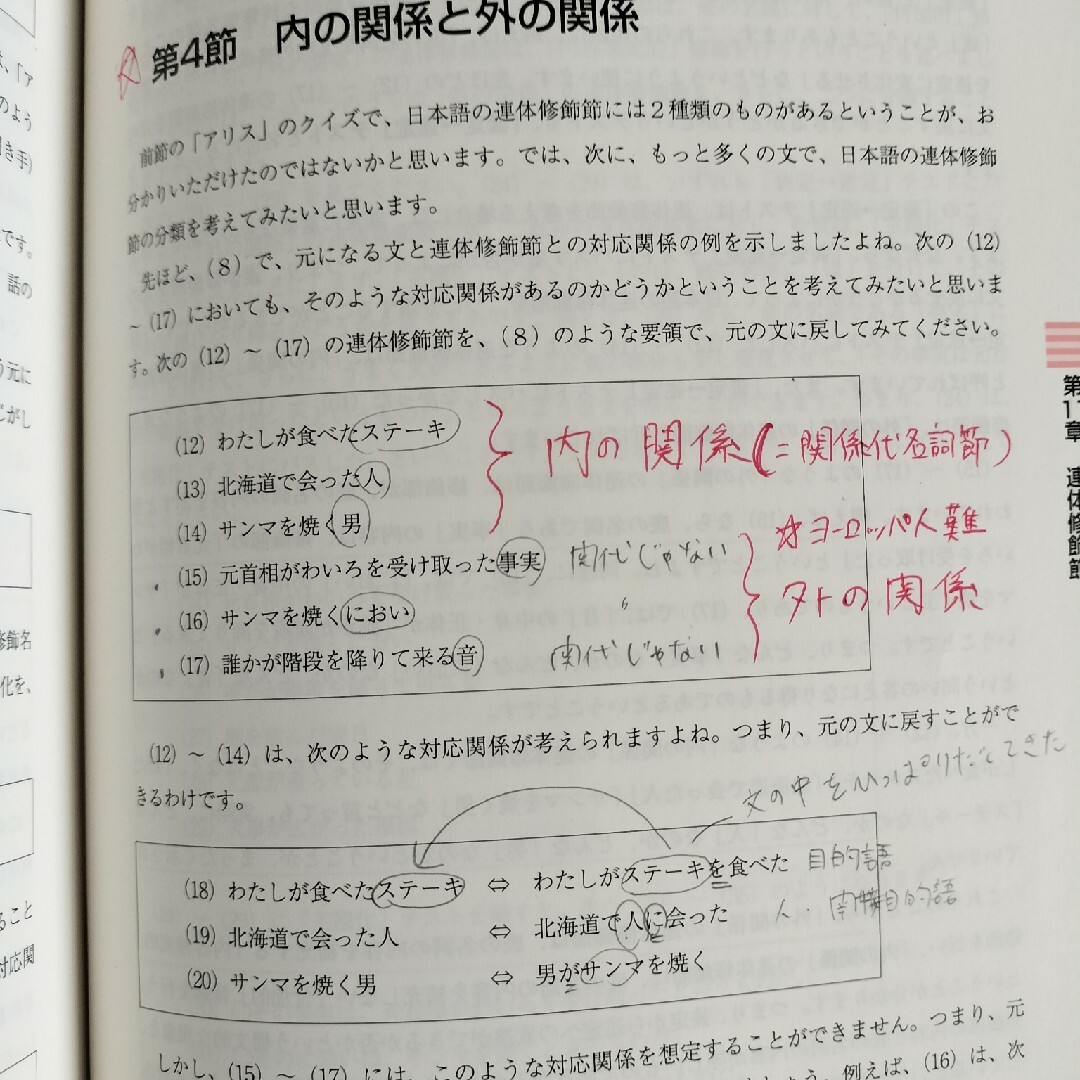 第4節 内の関係と外の関係
前節の「アリス」のクイズで、日本語の連体修飾節には2種類のものがあるということが、お
分かりいただけたのではないかと思います。では、次に、もっと多くの文で、日本語の連体修飾
節の分類を考えてみたいと思います。
先ほど、(8)で、元になる文と連体修飾節との対応関係の例を示しましたよね。次の(12)
～(17)においても、そのような対応関係があるのかどうかということを考えてみたいと思いま
す。次の(12)～(17)の連体修飾節を、(8)のような要領で、元の文に戻してみてください。
(12) わたしが食べたステーキ
(13) 北海道で会った人
内の関係(=関係代名詞節)
(14) サンマを焼く男
*ヨーロッパ人難
(15) 元首相がわいろを受け取った事実 関代じゃない
(16) サンマを焼くにおい 〃
外の関係
(17) 誰かが階段を降りて来る音 関代じゃない
(12)～(14)は、次のような対応関係が考えられますよね。つまり、元の文に戻すことがで
きるわけです。
文の中をひっぱりだしてきた
(18) わたしが食べたステーキ ⇔ わたしがステーキを食べた 目的語
(19) 北海道で会った人 ⇔ 北海道で人に会った 人・間接目的語
(20) サンマを焼く男 ⇔ 男がサンマを焼く
しかし、(15)～(17)には、このような対応関係を想定することができません。つまり、元
しょう。例えば、(16)は、次
第11章 連体修飾節
、「ア
のよう
き手)
です。
話の
う元に
じがし
修飾名
化を、
ること
対応関